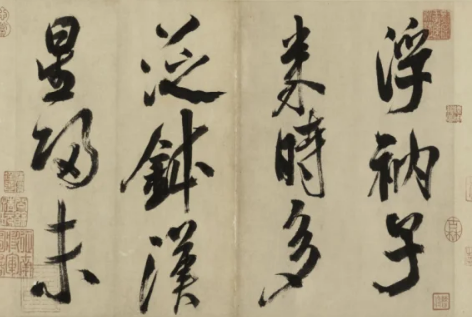 浮衲子
来時多
泛鉢漢
星歸未